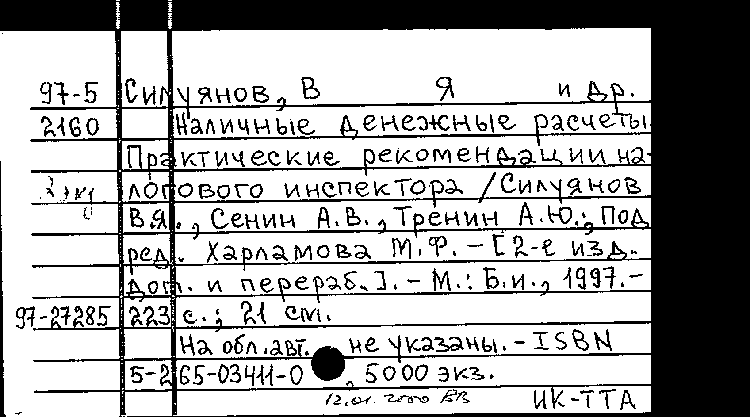 97-5 Силуянов, В Я и др.
2160 Наличные денежные расчеты.
Практические рекомендации на-
логового инспектора / Силуянов
В.Я., Сенин А.В., Тренин А.Ю.; Под
ред. Харламова М.Ф. - [2-е изд.
доп. и перераб.]. - М.: Б.и., 1997. -
97-27285 223 с.; 21 см.
На обл. авт. не указаны. - ISBN
5-265-03411-0 , 5000 экз.
12.01.2000 ВВ ИК-ТТА